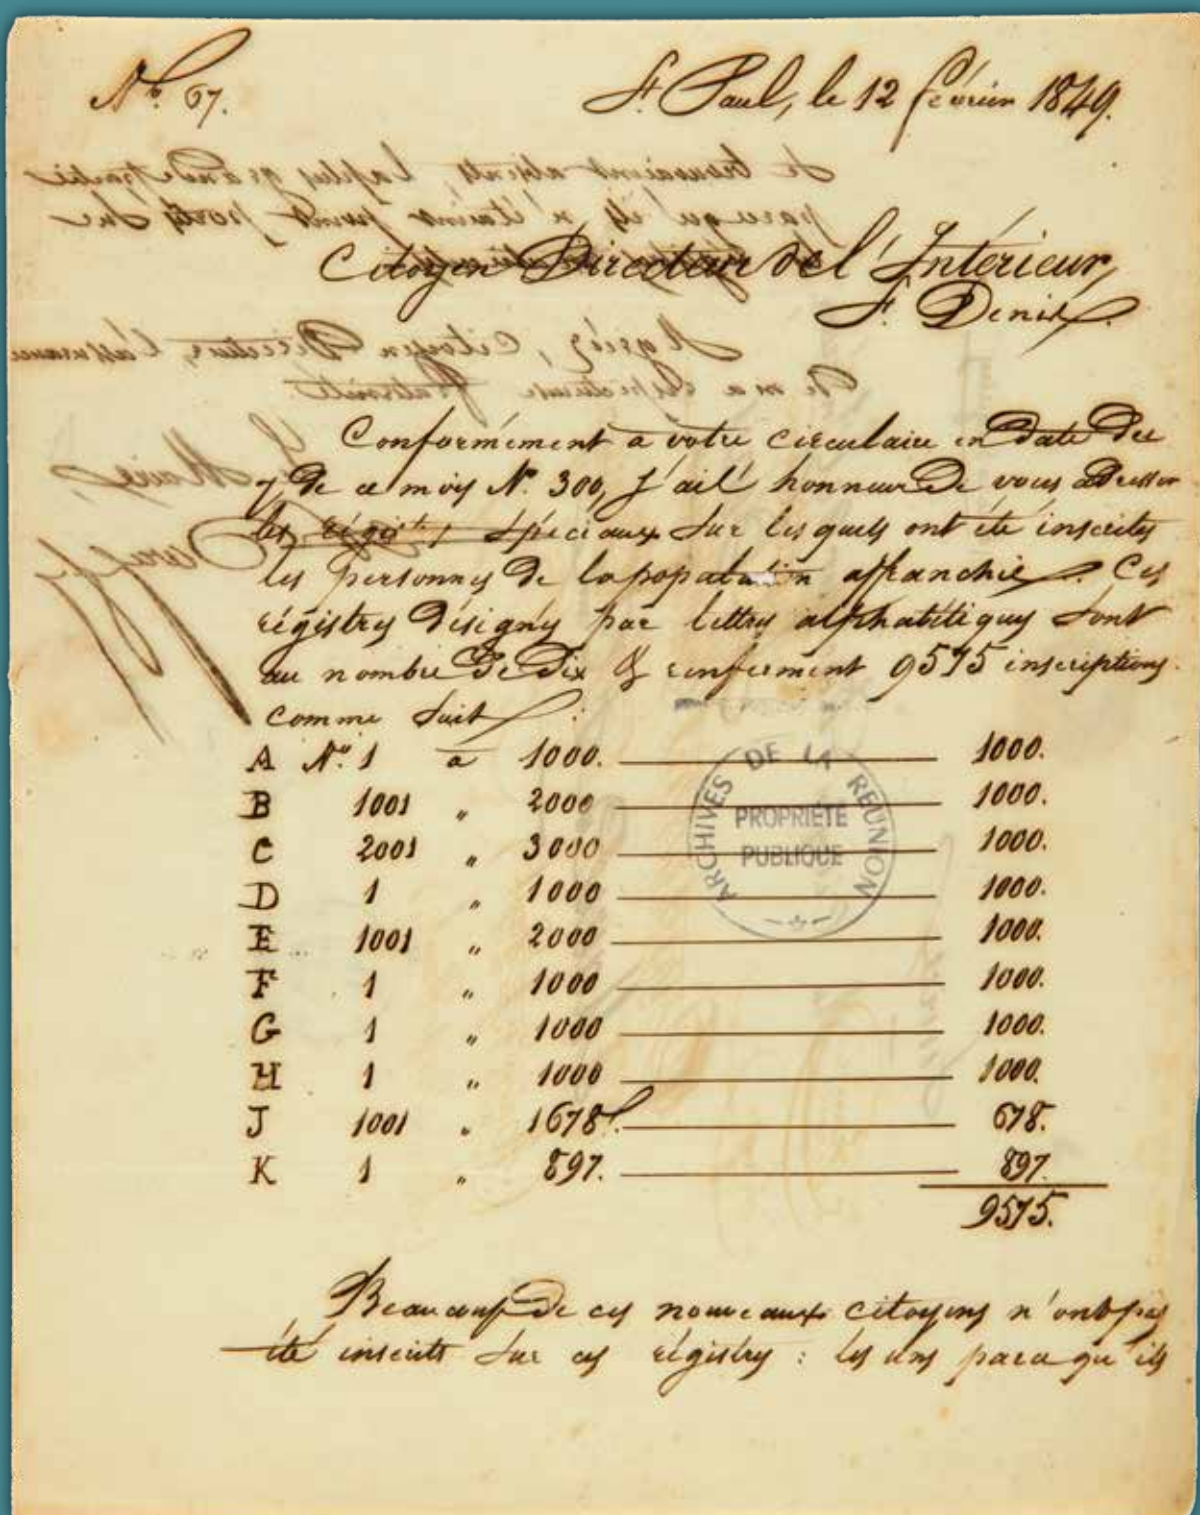 N.º 67.
St. Paul, le 12 février 1849.
Citoyen Directeur de l'Intérieur,
St. Denis.
Conformément à votre circulaire en date du
7 de ce mois N.º 300, j'ai l'honneur de vous adresser
les régist.s spéciaux sur lesquels ont été inscrites
les personnes de la population affranchie. Ces
régistres désignés par lettres alphabétiques sont
au nombre de dix & renferment 9575 inscriptions
comme suit :
A N.º 1 à 1000. 1000.
B 1001 " 2000 1000.
C 2001 " 3000 1000.
D 1 " 1000 1000.
E 1001 " 2000 1000.
F 1 " 1000 1000.
G 1 " 1000 1000.
H 1 " 1000 1000.
J 1001 " 1678. 678.
K 1 " 897. 897.
9575.
ARCHIVES DE LA REUNION
PROPRIÉTÉ
PUBLIQUE
Beaucoup de ces nouveaux citoyens n'ont pas
été inscrits sur ces régistres : les uns parce qu'ils